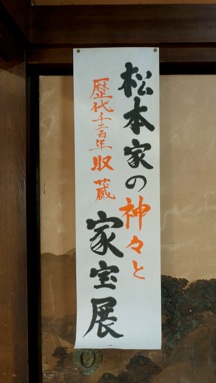 松本家の神々と
歴代十三百年収蔵
家宝展